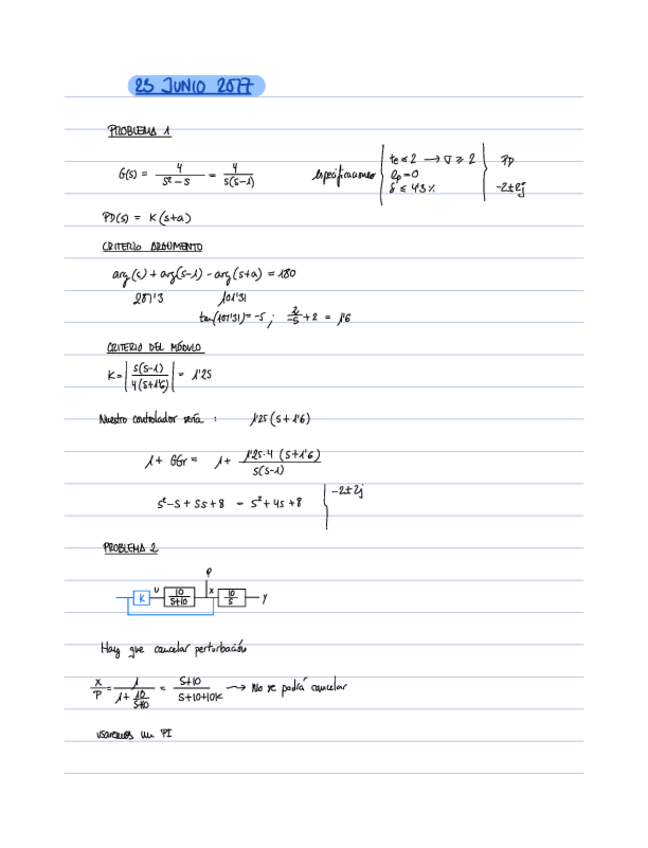 23 JUNIO 2017
PROBLEMA 1
G(s) = 4 / s² - s = 4 / s(s-1) especificaciones te ≤ 2 → ∇ ≥ 2 PD
ep = 0
δ ≤ 4'3 % -2±2j
PD(s) = K(s+a)
CRITERIO ARGUMENTO
arg(s) + arg(s-1) - arg(s+a) = 180
281'3 101'31
tan(101'31) = -5 ; 2/-5 + 2 = 1'6
CRITERIO DEL MÓDULO
K = | s(s-1) / 4(s+1'6) | = 1'25
Nuestro controlador sería : 1'25 (s+1'6)
1 + GGr = 1 + 1'25·4 (s+1'6) / s(s-1)
s² - s + 5s + 8 = s² + 4s + 8 -2±2j
PROBLEMA 2
P
K U 10 / s+10 X 10 / s Y
Hay que cancelar perturbación
X / P = 1 / 1 + 10 / s+10 = s+10 / s+10+10K → No se podrá cancelar
usaremos un PI